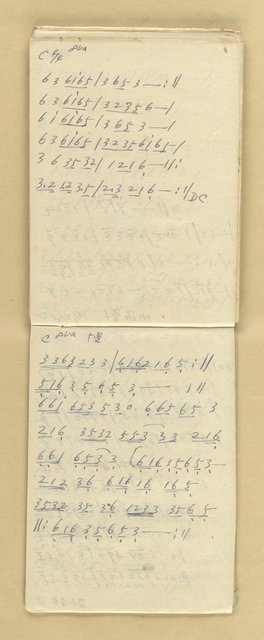 C 4/4 8va
6 3 6i65 / 3 6 5 3 — :||
6 3 6i65 / 3 2 3 5 6 — /
6 i 6i65 / 3 6 5 3 — /
6 3 6i65 / 32356i65 — /
3 6 35 32 / 1 2 1 6 — ||:
3.2 12 3.5 / 2.3 2 1 6 — :|| DC
C 8va
3 3 6 3 2 3 3 / 6 1 6 2 1 6 5 :||
5 1 6 3 5 6 5 3 — :||
6 6 i 6 5 3 5 3 0 6 6 5 6 5 3
2 1 6 3532 553 3 3 2 1 6
6 6 1 6 5 3 3 6 1 6 3 5 6 5 3
2 1 2 3 6 6 1 6 1 6 1 6 5
3532 35 36 1233 35 6 5
||: 6 1 6 3 5 6 5 3 — :||